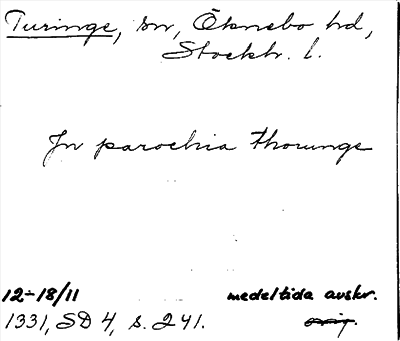 Turinge, sn, Öknebo hd,
Stockh. l.
Jn parochia Thorunge
12-18/11 medeltida avskr.
1331, SD 4, s. 241. orig.